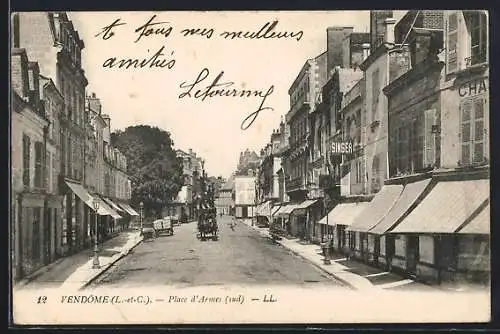 et tous mes meilleurs
amitiés
SINGER
CHA
12 VENDÔME (L.-et-C.). — Place d'Armes (sud) — LL.